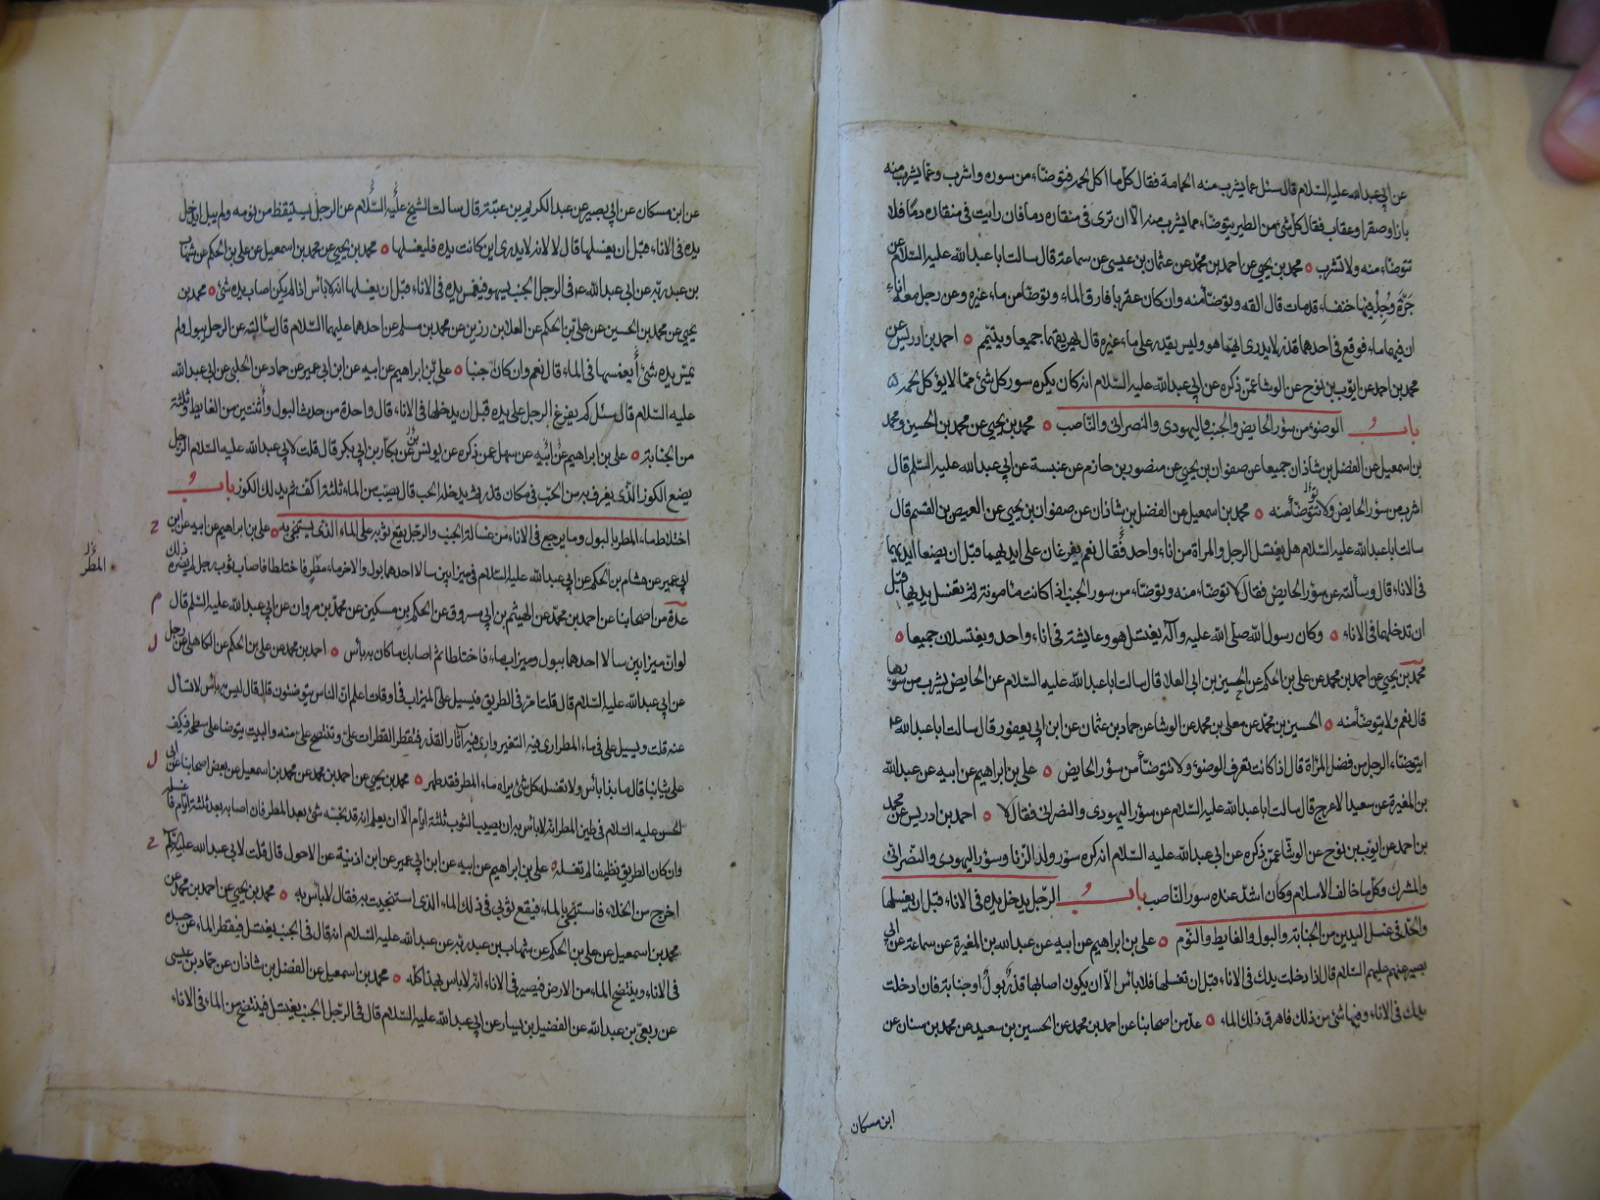 عن ابي عبدالله عليه السلام قال سئل عما يشرب منه الحمامة فقال كل ما اكل لحمه فتوضأ من سوره واشرب وعما يشرب منه
باز او صقر او عقاب فقال كل شئ من الطير يتوضأ مما يشرب منه الا ان ترى في منقاره دما فان رايت في منقاره دما فلا
تتوضأ منه ولا تشرب ه محمد بن يحيى عن احمد بن محمد عن عثمان بن عيسى عن سماعة قال سالت ابا عبدالله عليه السلام عن
جرة وجد فيها خنفساء قد مات قال القه وتوضأ منه وان كان عقربا فارق الماء وتوضأ من ماء غيره وعن رجل معه اناءان
فيهما ماء فوقع في احدهما قذر لا يدرى ايهما هو وليس يقدر على ماء غيره قال يهريقهما جميعا ويتيمم ه احمد بن ادريس عن
محمد بن احمد عن ايوب بن نوح عن الوشا عمن ذكره عن ابي عبدالله عليه السلام انه كان يكره سور كل شئ مما لا يؤكل لحمه ه
باب الوضوء من سؤر الحايض والجنب واليهودى والنصرانى والناصب ه محمد بن يحيى عن محمد بن الحسين ومحمد
بن اسمعيل عن الفضل بن شاذان جميعا عن صفوان بن يحيى عن منصور بن حازم عن عنبسة عن ابي عبدالله عليه السلم قال
اشرب من سؤر الحايض ولا تتوضأ منه ه محمد بن اسمعيل عن الفضل بن شاذان عن صفوان بن يحيى عن العيص بن القسم قال
سالت ابا عبدالله عليه السلام هل يغتسل الرجل والمراة من اناء واحد فقال نعم يفرغان على ايديهما قبل ان يضعا ايديهما
فى الاناء قال وسألته عن سؤر الحايض فقال لا توضأ منه وتوضأ من سور الجنب اذا كانت مامونة ثم تغسل يديها قبل
ان تدخلها فى الاناء ه وكان رسول الله صلى الله عليه وآله يغتسل هو وعايشة فى اناء واحد ويغتسلان جميعا ه
محمد بن يحيى عن احمد بن محمد عن على بن الحكم عن الحسين بن ابى العلا قال سالت ابا عبدالله عليه السلام عن الحايض يشرب من سؤرها
قال نعم ولا يتوضأ منه ه الحسين بن محمد عن معلى بن محمد عن الوشا عن حماد بن عثمان عن ابن ابى يعفور قال سالت ابا عبدالله ع
ايتوضأ الرجل من فضل المرأة قال اذا كانت تعرف الوضوء ولا تتوضأ من سؤر الحايض ه على بن ابراهيم عن ابيه عن عبدالله
بن المغيرة عن سعيد الاعرج قال سالت ابا عبدالله عليه السلام عن سؤر اليهودى والنصرانى فقال لا ه احمد بن ادريس عن محمد
بن احمد عن ايوب بن نوح عن الوشا عمن ذكره عن ابى عبدالله عليه السلام انه كره سور ولد الزنا وسؤر اليهودى والنصرانى
والمشرك وكل ما خالف الاسلام وكان اشد عنده سور الناصب باب الرجل يدخل يده فى الاناء قبل ان يغسلها
والحد فى غسل اليدين من الجنابة والبول والغايط والنوم ه على بن ابراهيم عن ابيه عن عبدالله بن المغيرة عن سماعة عن ابى
بصير عنهم عليهم السلام قال اذا دخلت يدك فى الاناء قبل ان تغسلها فلا بأس الا ان يكون اصابها قذر بول او جنابة فان ادخلت
يدك فى الاناء وفيها شئ من ذلك فاهرق ذلك الماء ه عدة من اصحابنا عن احمد بن محمد عن الحسين بن سعيد عن محمد بن سنان عن
ابن مسكان
عن ابن مسكان عن ابى بصير عن عبد الكريم بن عتبة قال سالت الشيخ عليه السلام عن الرجل يستيقظ من نومه ولم يبل ايدخل
يده فى الاناء قبل ان يغسلها قال لا لانه لا يدرى اين كانت يده فليغسلها ه محمد بن يحيى عن محمد بن اسمعيل عن على بن الحكم عن شهاب
بن عبد ربه عن ابى عبدالله ع فى الرجل الجنب يسهو فيغمس يده فى الاناء قبل ان يغسلها انه لا بأس اذا لم يكن اصاب يده شئ ه محمد بن
يحيى عن محمد بن الحسين عن على بن الحكم عن العلا بن رزين عن محمد بن مسلم عن احدهما عليهما السلام قال سألته عن الرجل يبول ولم
يمس يده شئ أيغمسها فى الماء قال نعم وان كان جنبا ه على بن ابراهيم عن ابيه عن ابن ابى عمير عن حماد عن الحلبى عن ابى عبدالله
عليه السلام قال سئل كم يفرغ الرجل على يده قبل ان يدخلها فى الاناء قال واحدة من حدث البول واثنتين من الغايط وثلثة
من الجنابة ه على بن ابراهيم عن ابيه عن سهل عمن ذكره عن يونس عن بكار بن ابى بكر قال قلت لابى عبدالله عليه السلام الرجل
يضع الكوز الذى يغرف به من الحب فى مكان قذر ثم يدخله الحب قال يصب من الماء ثلثة اكف ثم يدلك الكوز باب
اختلاط ماء المطر بالبول وما يرجع فى الاناء من غسالة الجنب والرجل يقع ثوبه على الماء الذى يستنجى به ه على بن ابراهيم عن ابيه عن ابن
ابى عمير عن هشام بن الحكم عن ابى عبدالله عليه السلام فى ميزابين سالا احدهما بول والاخر ماء مطر فاختلطا فاصاب ثوب رجل لم يضره ذلك
المطر
عدة من اصحابنا عن احمد بن محمد عن الهيثم بن ابى مسروق عن الحكم بن مسكين عن محمد بن مروان عن ابى عبدالله عليه السلم قال
لو ان ميزابين سالا احدهما ببول وميزاب بماء فاختلطا ثم اصابك ما كان به بأس ه احمد بن محمد عن على بن الحكم عن الكاهلى عن رجل
عن ابى عبدالله عليه السلام قال قلت امر فى الطريق فيسيل على الميزاب فى اوقات اعلم ان الناس يتوضئون قال قال ليس به بأس لا تسأل
عنه قلت ويسيل على فى ماء المطر ارى فيه التغير وارى فيه آثار القذر فتقطر القطرات على وتنتضح على منه والبيت يتوضا على سطحه فيكف
على ثيابنا قال ما بذا بأس ولا تغسله كل شئ يراه ماء المطر فقد طهر ه محمد بن يحيى عن احمد بن محمد عن محمد بن اسمعيل عن بعض اصحابنا عن ابى
الحسن عليه السلام فى طين المطر انه لا بأس به ان يصيب الثوب ثلثة ايام الا ان يعلم انه قد نجسه شئ بعد المطر فان اصابه بعد ثلثة ايام فاغسله
وان كان الطريق نظيفا لم تغسله ه على بن ابراهيم عن ابيه عن ابن ابى عمير عن ابن اذينة عن الاحول قال قلت لابى عبدالله عليه السلم
اخرج من الخلاء فاستنجى بالماء فيقع ثوبى فى ذلك الماء الذى استنجيت به فقال لا بأس به ه محمد بن يحيى عن احمد بن محمد عن
محمد بن اسمعيل عن على بن الحكم عن شهاب بن عبد ربه عن ابى عبدالله عليه السلام انه قال فى الجنب يغتسل فيقطر الماء عن جسده
فى الاناء وينتضح الماء من الارض فيصير فى الاناء انه لا باس بهذا كله ه محمد بن اسمعيل عن الفضل بن شاذان عن حماد بن عيسى
عن ربعى بن عبدالله عن الفضيل بن يسار عن ابى عبدالله عليه السلام قال فى الرجل الجنب يغتسل فينتضح من الماء فى الاناء